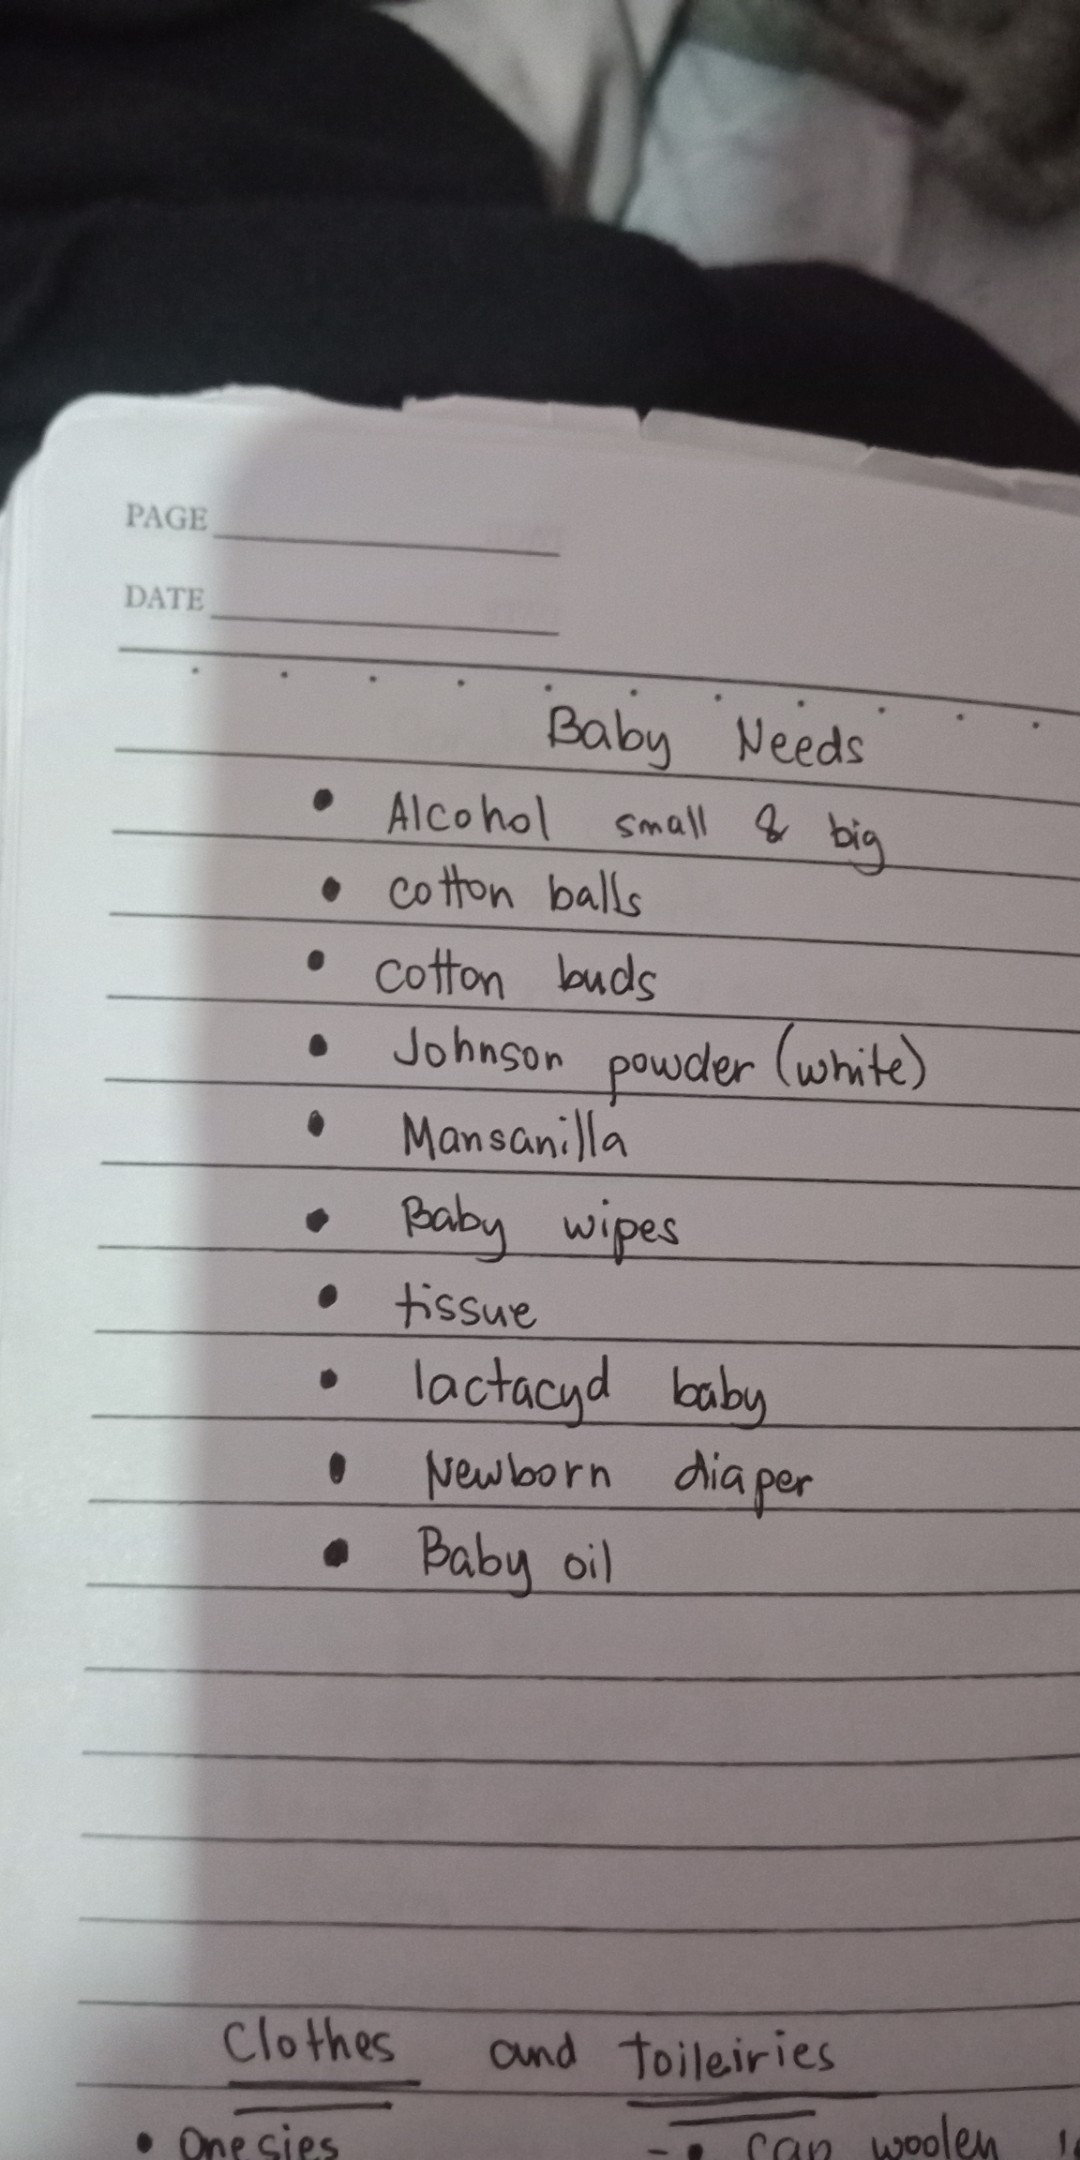 PAGE
DATE
Baby Needs
• Alcohol small & big
• cotton balls
• cotton buds
• Johnson powder (white)
• Mansanilla
• Baby wipes
• tissue
• lactacyd baby
• Newborn diaper
• Baby oil
Clothes and toileiries
• Onesies - • cap woolen